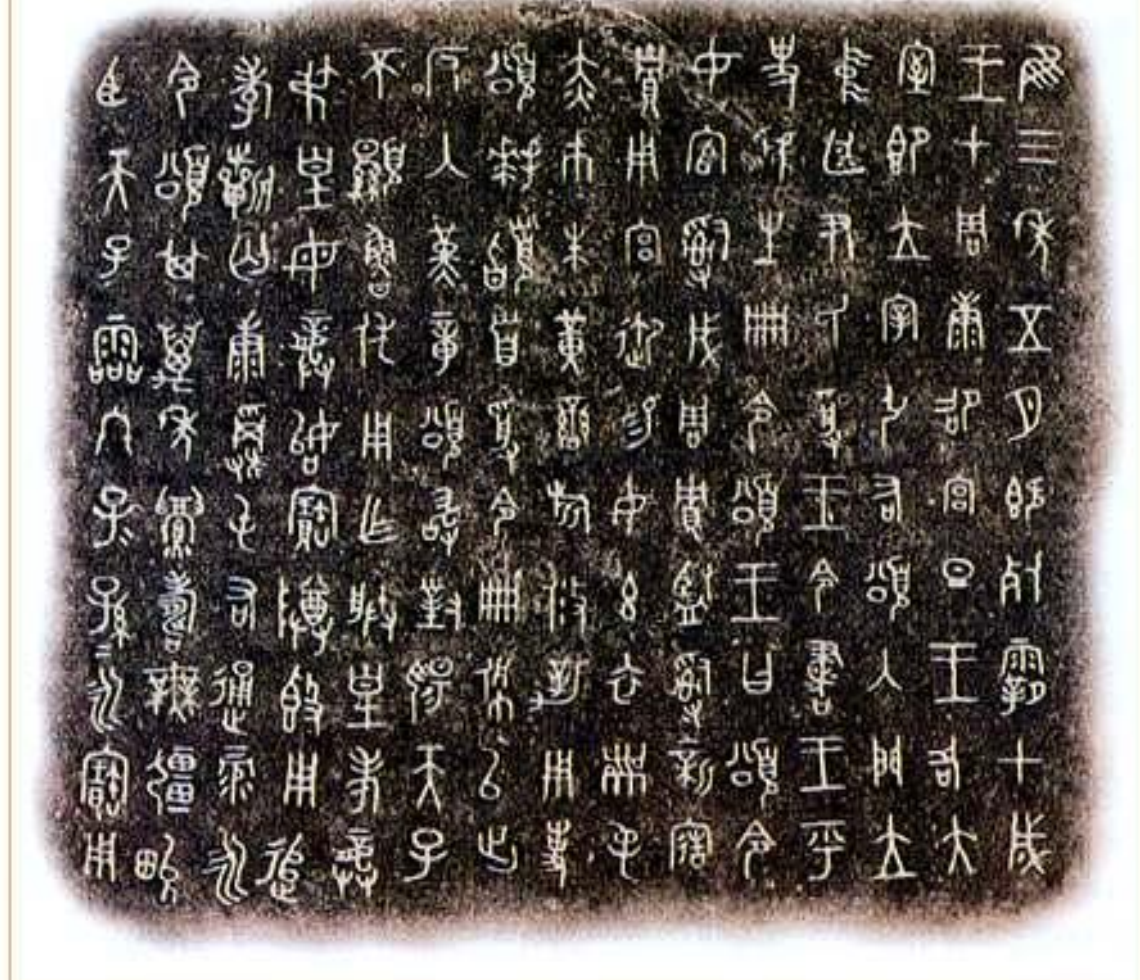 隹三年五月既死霸甲戌
王才周康卲宮旦王各大
室即立宰引右頌入門立
中廷尹氏受王令書王乎
史虢生冊令頌王曰頌令
女官𤔲成周貯監𤔲新寤
貯用宮御易女玄衣黹屯
赤巿朱黃䜌旂攸勒用事
頌拜𩒨首受令冊佩以出
反入堇章頌敢對揚天子
不顯魯休用乍朕皇考龏
弔皇母龏始寶尊𣪘用追
孝𣄨匄康𩁹屯右通彔永
令頌其萬年眉壽無疆畯
臣天子霝冬子=孫=永寶用